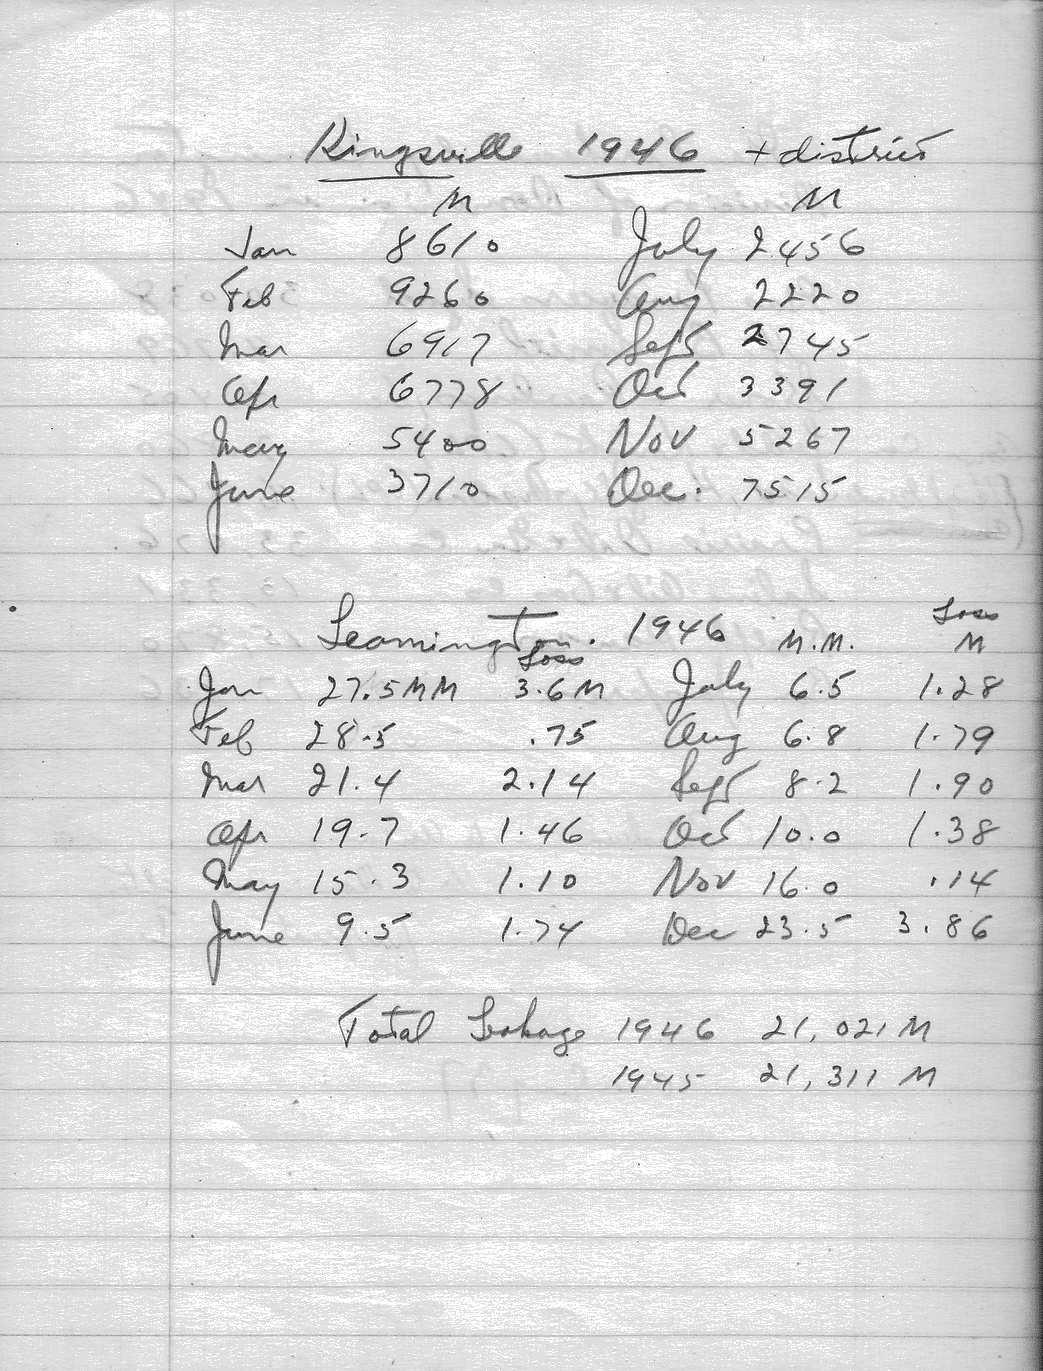 Kingsville 1946 + district
M M
Jan 8610 July 2456
Feb 9260 Aug 2220
Mar 6917 Sept 2745
Apr 6778 Oct 3391
May 5400 Nov 5267
June 3710 Dec. 7515
Leamington. 1946 M.M. Loss M
Loss
Jan 27.5MM 3.6M July 6.5 1.28
Feb 28.5 .75 Aug 6.8 1.79
Mar 21.4 2.14 Sept 8.2 1.90
Apr 19.7 1.46 Oct 10.0 1.38
May 15.3 1.10 Nov 16.0 .14
June 9.5 1.74 Dec 23.5 3.86
Total Leakage 1946 21,021 M
1945 21,311 M